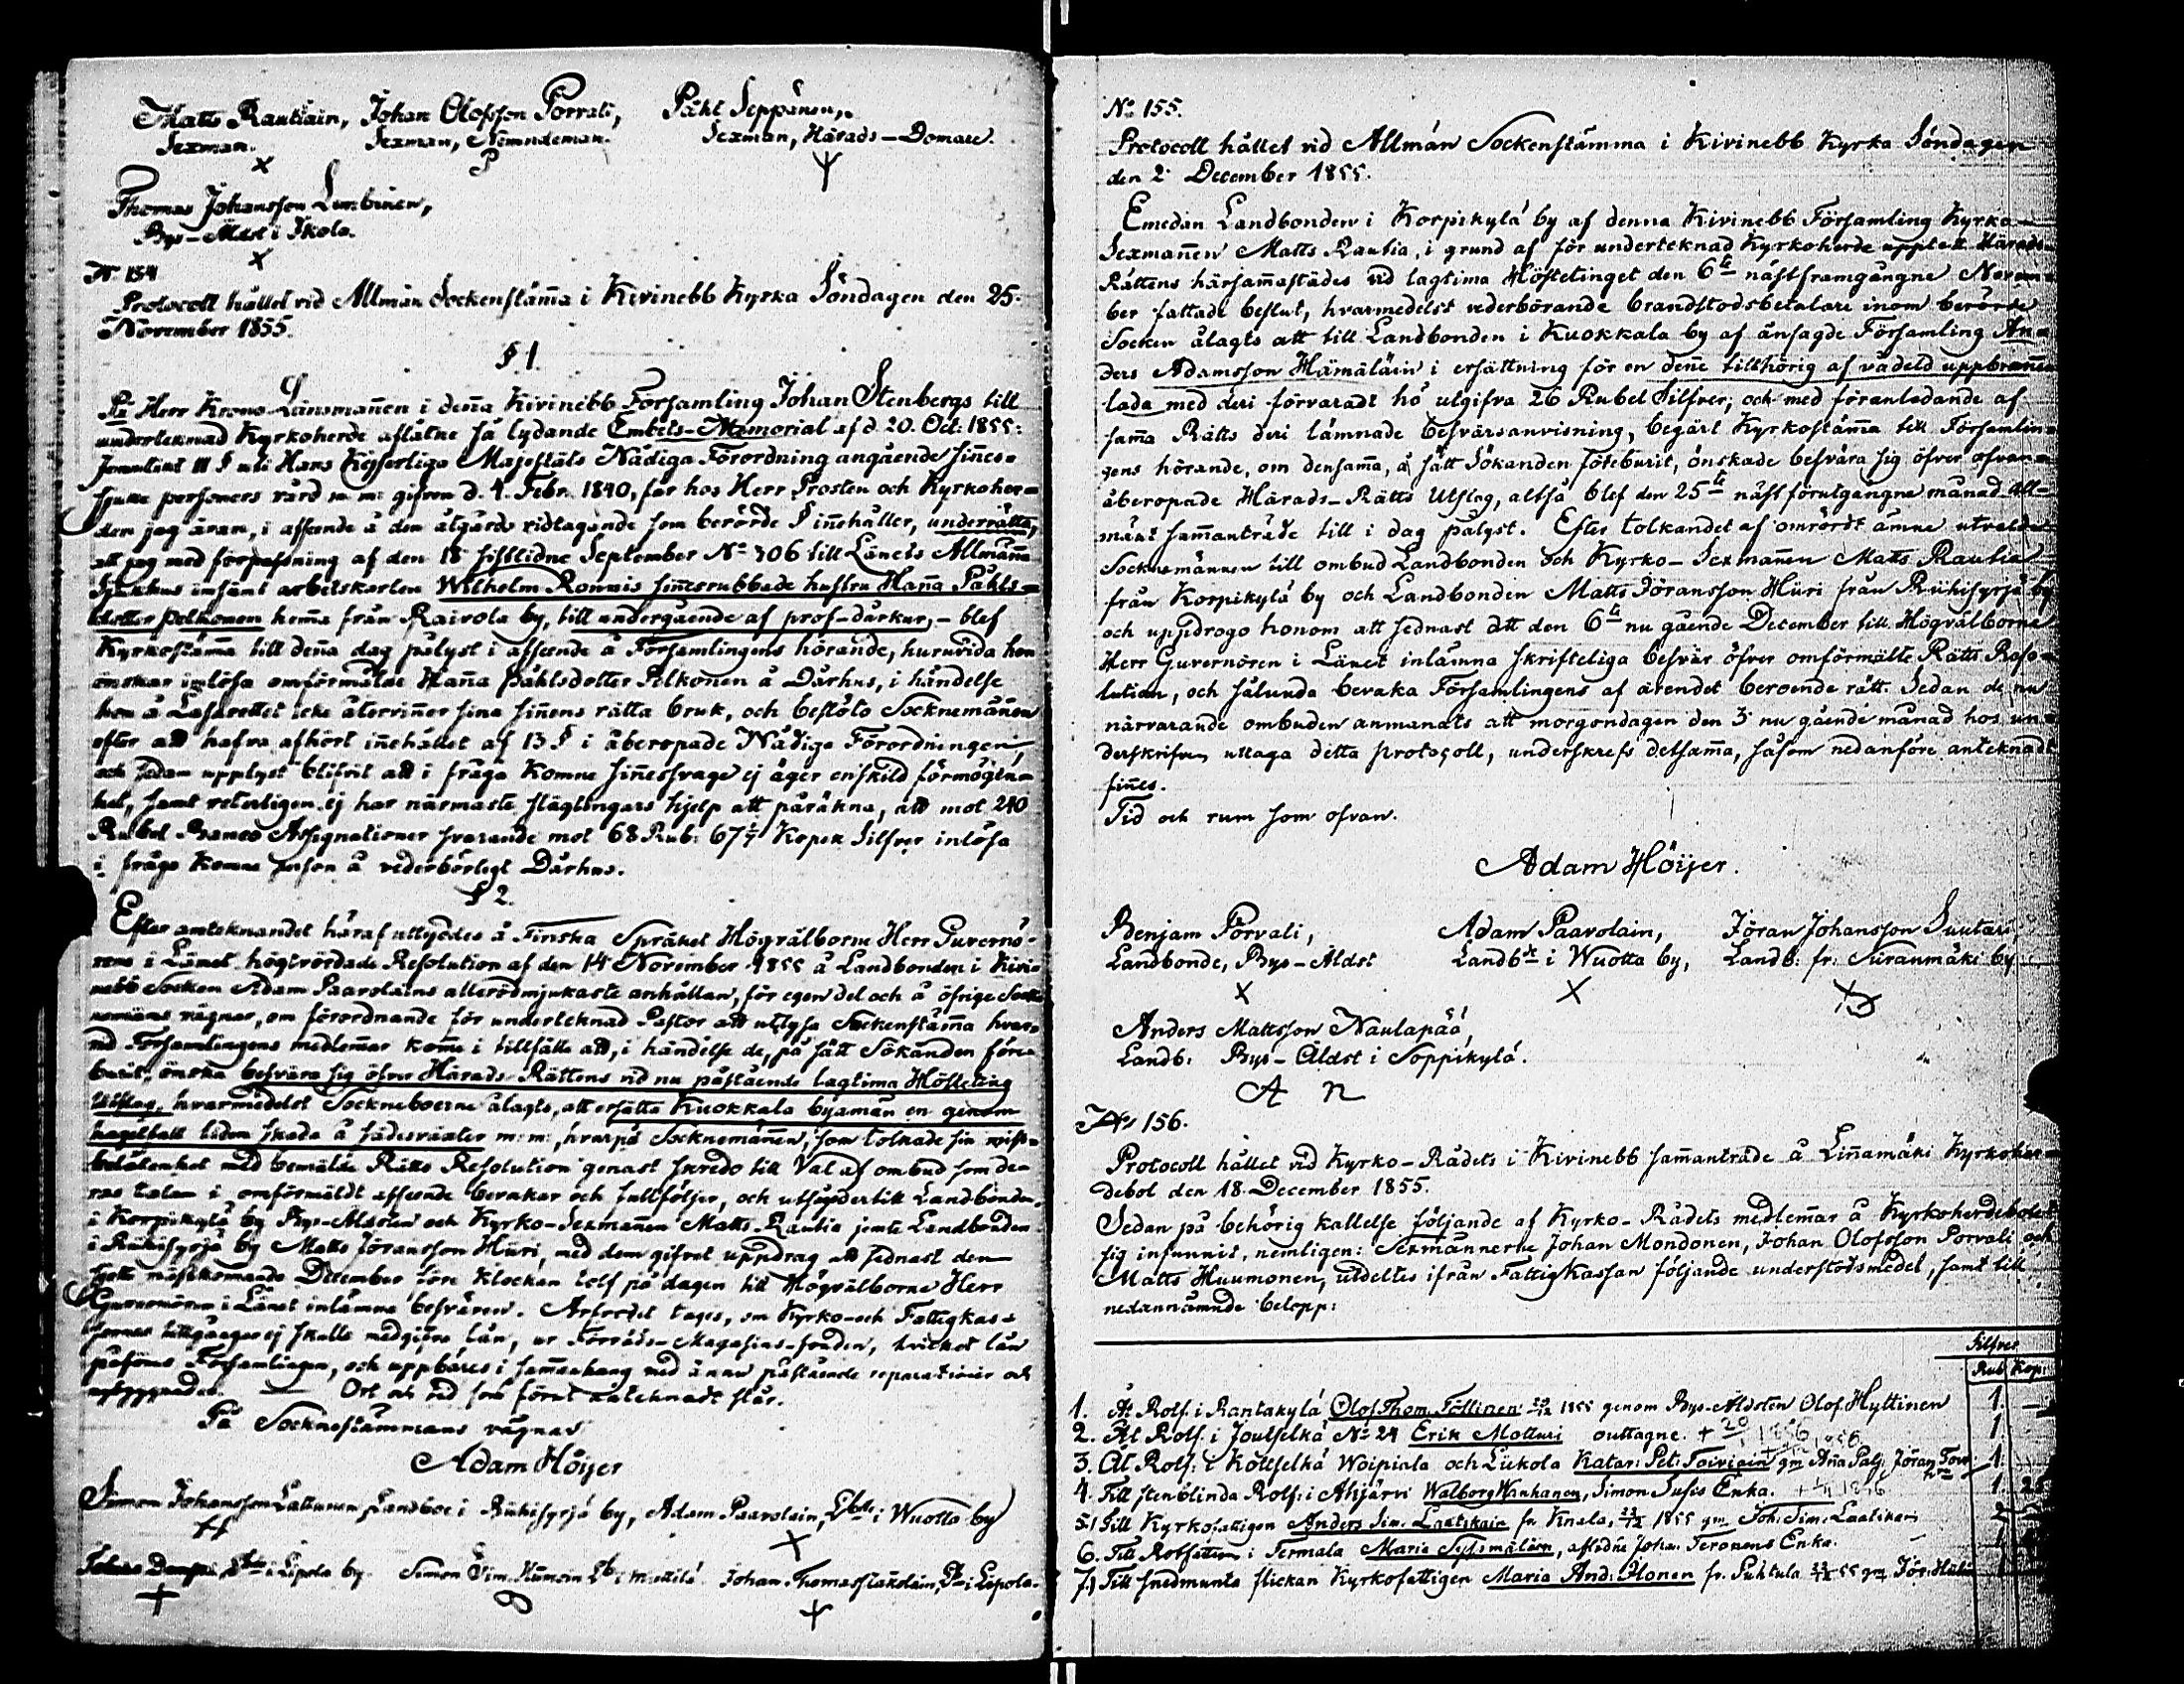 Matts Rautiain, Johan Olofsson Porvali, Påhl Seppänen,
Sexman. Sexman, Nämndeman. Sexman, Härads-Domare.
Thomas Johansson Lumbinen,
Bys-Äldst i Ikola.
N. 154
Protocoll hållet vid Allmän Sockenstämma i Kivinebb Kyrka Söndagen den 25.
November 1855.
§ 1.
På Herr Krono Länsmannen i denna Kivinebb Församling Johan Stenbergs till
undertecknad Kyrkoherde aflåtne så lydande Embets-Memorial af d. 20. Oct. 1855:
Jemlikt § uti Hans Kejserliga Majestäts Nådiga Förordning angående sinnes-
sjuke personers vård m. m: gifven d. 4. Febr. 1840, får hos Herr Prosten och Kyrkoher-
den jag äran, i afseende å den åtgärds vidtagande som berörde § innehåller, underrätta,
att jag med förpassning af den 18 sistlidne September No 306 till Länets Allmänna
Sjukhus insändt arbetskarlen Wilhelm Ronnis sinnesrubbade hustru Hanna Påhls-
dotter Pelkonen hemma från Raivola by, till undergående af prof-dårkur, - blef
Kyrkostämma till denna dag pålyst i afseende å Församlingens hörande, huruvida hon
önskar inlösa omförmälde Hanna Påhlsdotter Pelkonen å Dårhus, i händelse
hon å Lasarettet icke återvinner sina sinnens rätta bruk, och beslöto Socknemännen
efter att hafva afhört innehållet af 13 § i åberopade Nådiga Förordningen,
och sedan upplyst blifvit att i fråga komne sinnessvage ej äger enskild förmögen-
het, samt veterligen ej har närmaste slägtingars hjelp att påräkna, att mot 240
Rubel Banco Assignationer svarande mot 68 Rub: 67 1/7 Kopek Silfver inlösa
i fråga komne person å vederbörligt Dårhus.
§ 2.
Efter antecknandet häraf uttyddes å Finska Språket Högvälborne Herr Guvernö-
rens i Länet högtvördade Resolution af den 14 November 1855 å Landbonden i Kivi-
nebb Socken Adam Paavolains allerödmjukaste anhållan, för egen del och å öfrige Socke-
nemäns vägnar, om förordnande för undertecknad Pastor att utlysa Sockenstämma hvar-
vid Församlingens medlemmar komme i tillfälle att, i händelse de, på sätt Sökanden före-
burit, önska besvära sig öfver Härads-Rättens vid nu påstående lagtima Hösteting
Utslag, hvarmedelst Sockneboerne ålagts, att ersätta Kuokkala byamän en genom
hagelfall liden skada å sädesväxter m: m:, hvarpå Socknemännen, som tolkade sin miss-
belåtenhet med bemälde Rätts Resolution genast skredo till Val af ombud som de-
ras talan i omförmäldt afseende bevakar och fullföljer, och utsågo dertill Landbonden
i Korpikylä by Bys-Äldsten och Kyrko-Sexmannen Matts Rautia jemte Landbonden
i Riihisyrjä by Matts Jöransson Hüri, med dem gifvet uppdrag att sednast den
sjette nästkomande December före klockan tolf på dagen till Högvälborne Herr
Guvernören i Länet inlämna besvären. Arfvodet tages, om Kyrko- och Fattigkas-
sornas tillgångar ej skulle medgifva lån, ur Förråds-Magasins-fonden, hvilket lån
påföres Församlingen, och uppbäres i sammanhang med ännu påstående reparationer och
nybyggnader. Ort och tid som först antecknadt står.
På Socknestämmans vägnar
Adam Höijer
Simon Johansson Lattunen, Landboe i Riihisyrjä by, Adam Paavolain, Lbde i Wuotta by
i Lipola by. Simon Sim. Lb i Mettilä Johan Thomass Lb i Lipola.
No 155.
Protocoll hållet vid Allmän Sockenstämma i Kivinebb Kyrka Söndagen
den 2 December 1855.
Emedan Landbonden i Korpikylä by af denna Kivinebb Församling Kyrko-
Sexmannen Matts Rautia, i grund af för undertecknad Kyrkoherde upptett Härads-
Rättens härsammastädes vid lagtima Höstetinget den 6te nästframgångne Novem-
ber fattade beslut, hvarmedelst vederbörande brandstodsbetalare inom berörde
Socken ålagts att till Landbonden i Kuokkala by af änsagde Församling An-
ders Adamsson Hämäläin i ersättning för en denne tillhörig af vådeld uppbrunnen
lada med deri förvaradt hö utgifva 26 Rubel Silfver; och med föranledande af
samma Rätts deri lämnade besvärsanvisning, begärt Kyrkostämma till Församlin-
gens hörande, om densamma, å sätt Sökanden föreburit, önskade besvära sig öfver ofvan-
åberopade Härads-Rätts Utslag, altså blef den 25te nästförutgångne månad all-
mänt sammanträde till i dag pålyst. Efter tolkandet af omrördt ämne utvalde
Socknemännen till ombud Landbonden och Kyrko-Sexmannen Matts Rautia
från Korpikylä by och Landbonden Matts Jöransson Hüri från Riihisyrjä by
och uppdrogo honom att sednast att den 6te nu gående December till Högvälborne
Herr Guvernören i Länet inlämna skrifteliga besvär öfver omförmälte Rätts Reso-
lution, och sålunda bevaka Församlingens af ärendet beroende rätt. Sedan de nu
närvarande ombuden anmanats att morgondagen den 3 nu gående månad hos un-
derskrifven uttaga detta protocoll, underskrefs detsamma, såsom nedanföre antecknadt
finnes.
Tid och rum som ofvan.
Adam Höijer.
Benjam Porvali, Adam Paavolain, Jöran Johansson Suutari
Landbonde, Bys-Äldst Landbde i Wuotta by, Landb: fr: Siiranmäki by
Anders Mattsson Naulapää,
Landb: Bys-Äldst i Soppikylä.
A n
No 156.
Protocoll hållet vid Kyrko-Rådets i Kivinebb sammanträde å Linnamäki Kyrkoher-
debol den 18. December 1855.
Sedan på behörig kallelse följande af Kyrko-Rådets medlemmar å Kyrkoherdebolet
sig infunnit, nemligen: Sexmännerne Johan Mondonen, Johan Olofsson Porvali och
Matts Huumonen, utdeltes ifrån Fattigkassan följande understödsmedel, samt till
nedannämnde belopp:
Silfver
Rub Kop:
1. Åt Rotf. i Rantakylä Olof Thom. Töllinen 23/12 1855 genom Bys-Äldsten Olof Hyttinen 1.
2. Åt Rotf. i Joutselkä No 24 Erik Motturi outtagne. + 20/1 1856 1
3. Åt Rotf: i Köttselkä Woipiala och Liikola Katar: Pet: Toiviain gm Anna Palj. Jöran Torv. 1.
4. Till stenblinda Rotf: i Ahjärvi Walborg Wanhanen, Simon Susis Enka. 1856 1 25
5.) Till Kyrkofattigen Anders Sim. Laatikain fr Knala, 23/12 1855 gm Joh: Sim. Laatikain 2
6. Till Rotfattigen i Termala Maria Sysmäläin, aflidne Johan Teronens Enka. 1
7.) Till snedmunta flickan Kyrkofattigen Maria And: Ilonen fr. Puhtula 23/12 55 gm Jör. 1